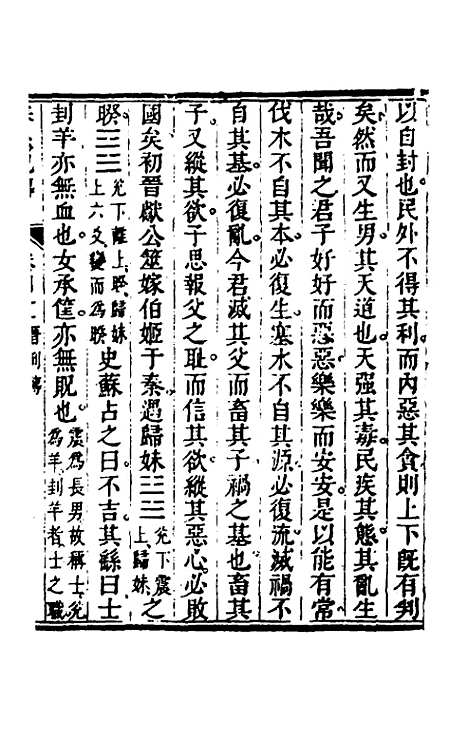 以自封也民外不得其利而内惡其貪則上下既有判
矣然而又生男其天道也天强其毒民疾其態其亂生
哉吾聞之君子好好而惡惡樂樂而安安是以能有常
伐木不自其本必復生塞水不自其源必復流滅禍不
自其基必復亂今君滅其父而畜其子禍之基也畜其
子又縱其欲子思報父之耻而信其欲縱其惡心必敗
國矣初晉獻公筮嫁伯姬于秦遇歸妹三三兌下震上歸妹之
睽三三兌下離上歸妹上六爻變而爲睽史蘇占之曰不吉其繇曰士
刲羊亦無血也女承筐亦無貺也震爲長男故稱士兌爲羊刲羊者士之職